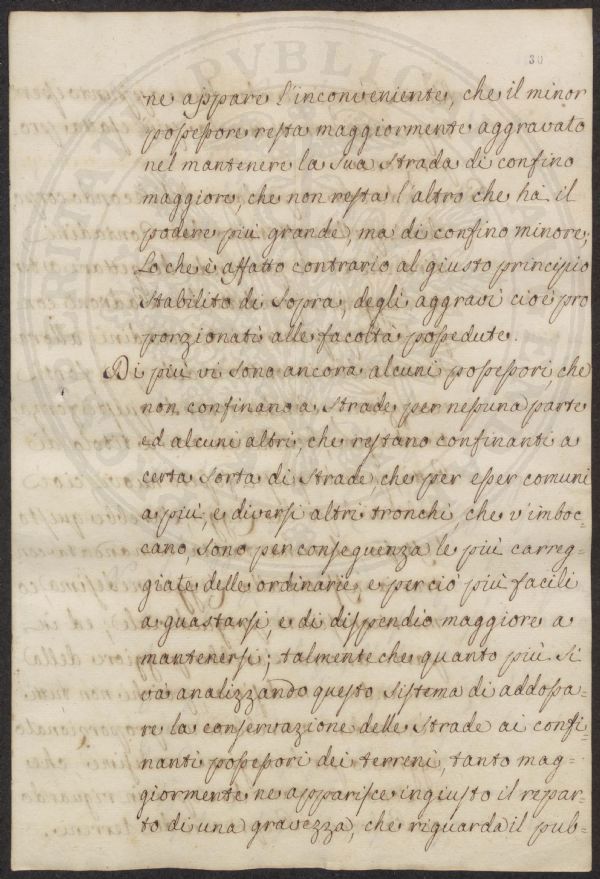 30
ne appare l'inconveniente, che il minor
possessore resta maggiormente aggravato
nel mantenere la sua strada di confino
maggiore, che non resta l'altro che há il
podere piú grande, ma di confino minore;
Lo che è affatto contrario al giusto principio
stabilito di sopra, degli aggravi cioé pro
porzionati alle facoltà possedute.
Di piú vi sono ancora alcuni possessori, che
non confinano a strade per nessuna parte
ed alcuni altri, che restano confinanti a
certa sorta di strade, che per esser comuni
a piú, e diversi altri tronchi, che v'imboc-
cano, sono per conseguenza le piú carreg-
giate delle ordinarie, e perció piú facili
a guastarsi, e di dispendio maggiore a
mantenersi; talmente che quanto piú si
vá analizzando questo sistema di addossa-
re la conservazione delle strade ai confi-
nanti possessori dei terreni, tanto mag-
giormente ne apparisce ingiusto il repar-
to di una gravezza, che riguarda il pub-